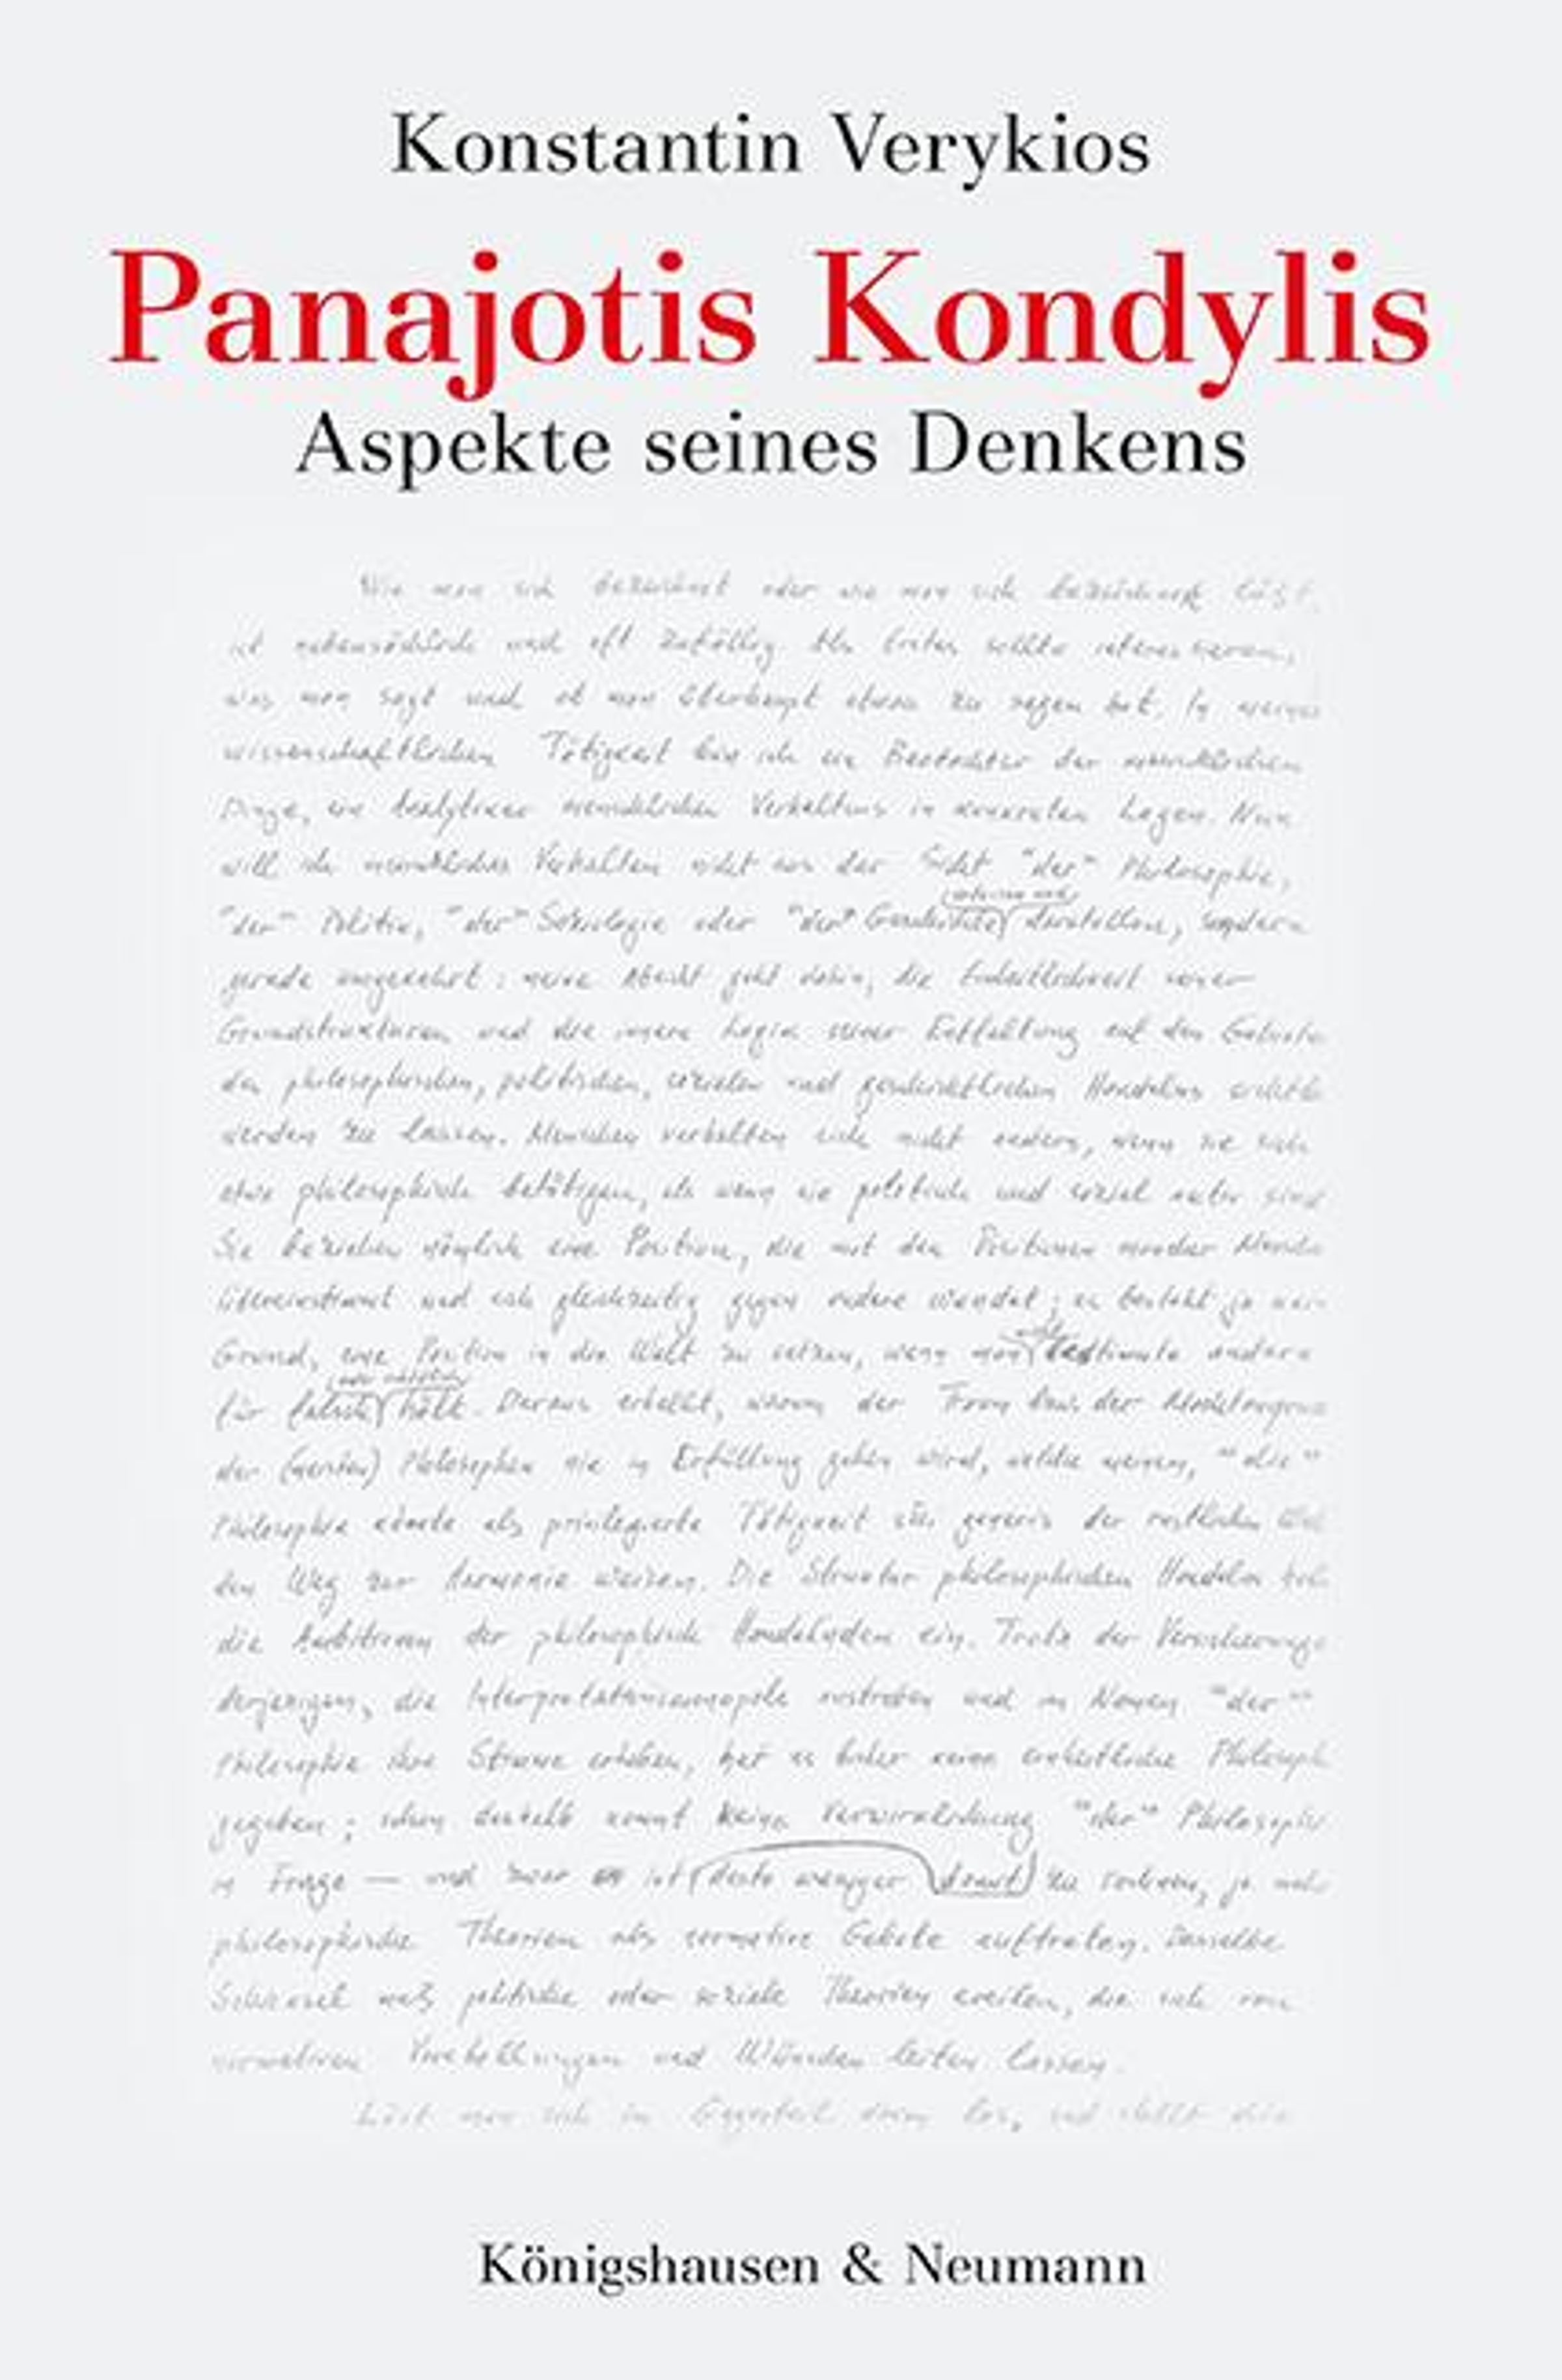 Konstantin Verykios
Panajotis Kondylis
Aspekte seines Denkens
Wie man sich bezeichnet oder wie man sich bezeichnen läßt,
ist nebensächlich und oft zufällig. sollte interessieren,
was man sagt und ob man überhaupt etwas zu sagen hat. In meiner
wissenschaftlichen Tätigkeit bin ich ein Beobachter der menschlichen
Dinge, ein Analytiker menschlichen Verhaltens in konkreten Lagen. Nun
will ich menschliches Verhalten nicht aus der Sicht "der" Philosophie,
"der" Politik, "der" Soziologie oder "der" Geschichte darstellen, sondern
gerade umgekehrt: meine Absicht geht dahin, die Einheitlichkeit seiner
Grundstrukturen und die innere Logik seiner Entfaltung auf den
des philosophischen, politischen, sozialen und geschichtlichen Handelns
werden zu lassen. Menschen verhalten sich nicht anders, wenn sie sich
etwa philosophisch betätigen, als wenn sie politisch und sozial aktiv sind.
Sie beziehen nämlich eine Position, die mit den Positionen mancher
übereinstimmt und sich gleichzeitig gegen andere wendet; es besteht ja kein
Grund, eine Position in die Welt zu setzen, wenn man nicht bestimmte andere
für falsch hält. Daraus erhellt, warum der Traum bzw. der
der (meisten) Philosophen nie in Erfüllung gehen wird, welche meinen, "die"
Philosophie könnte als privilegierte Tätigkeit sui generis der restlichen Welt
den Weg zur Harmonie weisen. Die Struktur philosophischen Handelns holt
die Ambitionen der philosophisch Handelnden ein. Trotz der
derjenigen, die Interpretationsmonopole anstreben und im Namen "der"
Philosophie ihre Stimme erheben, hat es bisher keine einheitliche
gegeben; schon deshalb kommt keine Verwirklichung "der" Philosophie
in Frage — und zwar ist desto weniger damit zu rechnen, je mehr
philosophische Theorien als normative Gebote auftreten. Dasselbe
Schicksal muß politische oder soziale Theorien ereilen, die sich von
normativen Vorstellungen und Wünschen leiten lassen.
Löst man sich im Gegenteil davon los, und stellt
Königshausen & Neumann